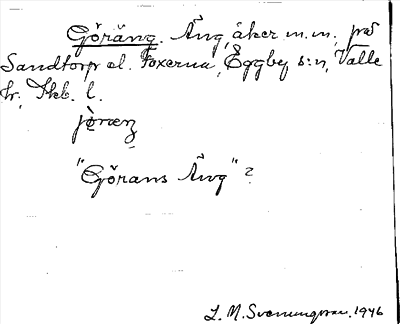 Göräng. Äng, åker m.m. på
Sandtorp el. Foxerna, Eggby s:n, Valle
hr, Skb. l.
"Görans Äng"?
L. M. Svenungsson. 1946